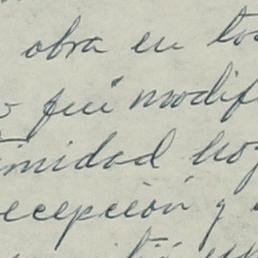 obra en to
fui modif
imidad hoy
ecepción y